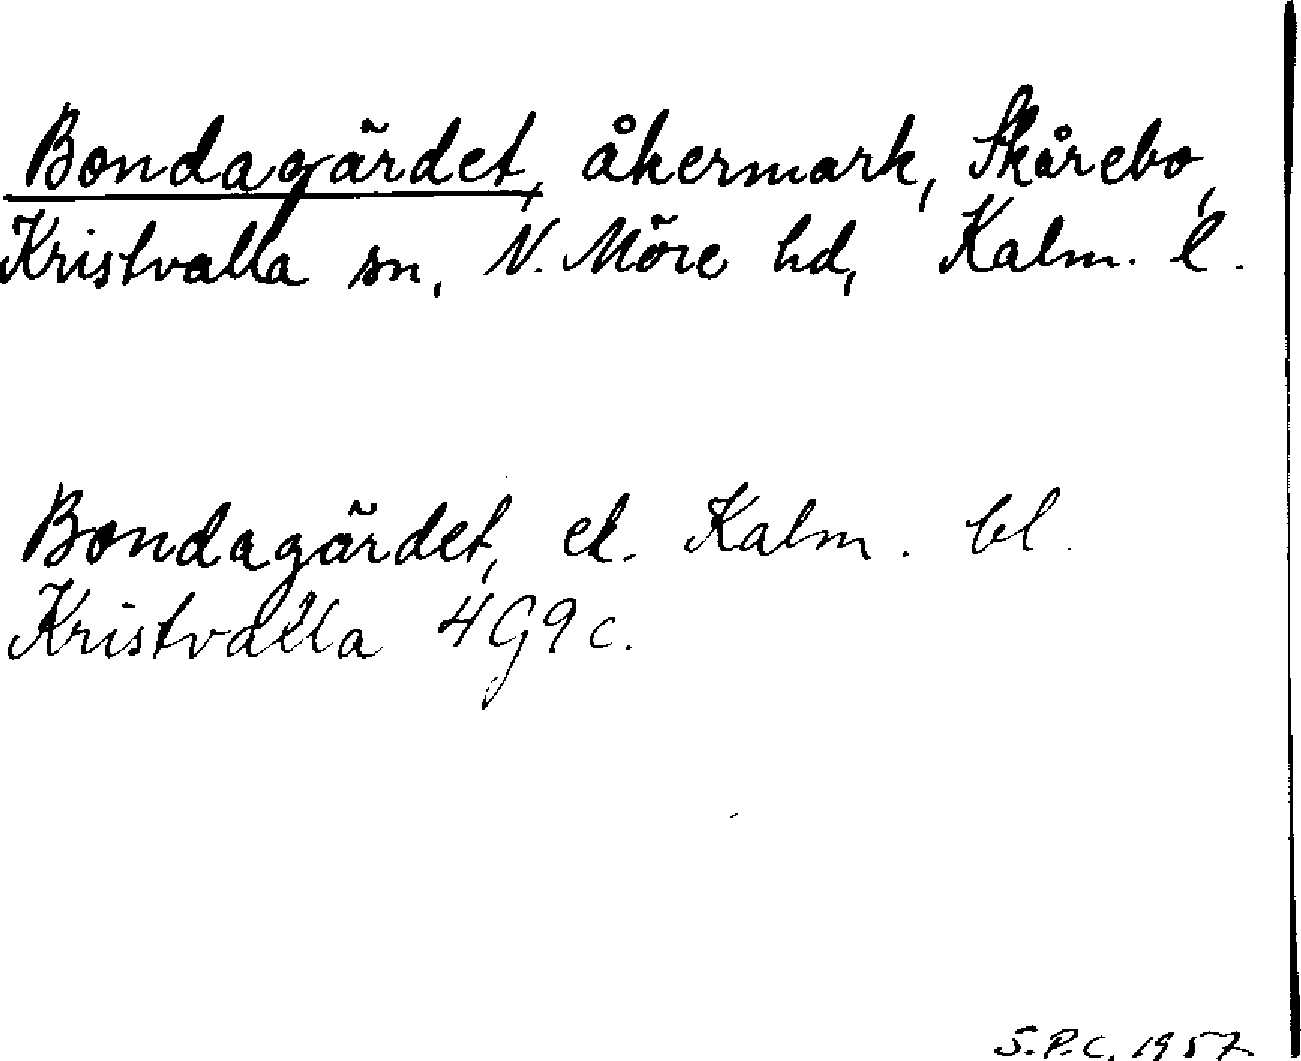 Bondagärdet, åkermark, Skårebo,
Kristvalla sn, N. Möre hd, Kalm. l.
Bondagärdet, ek. Kalm. bl.
Kristvalla 4G9c.
S.P.C. 1957